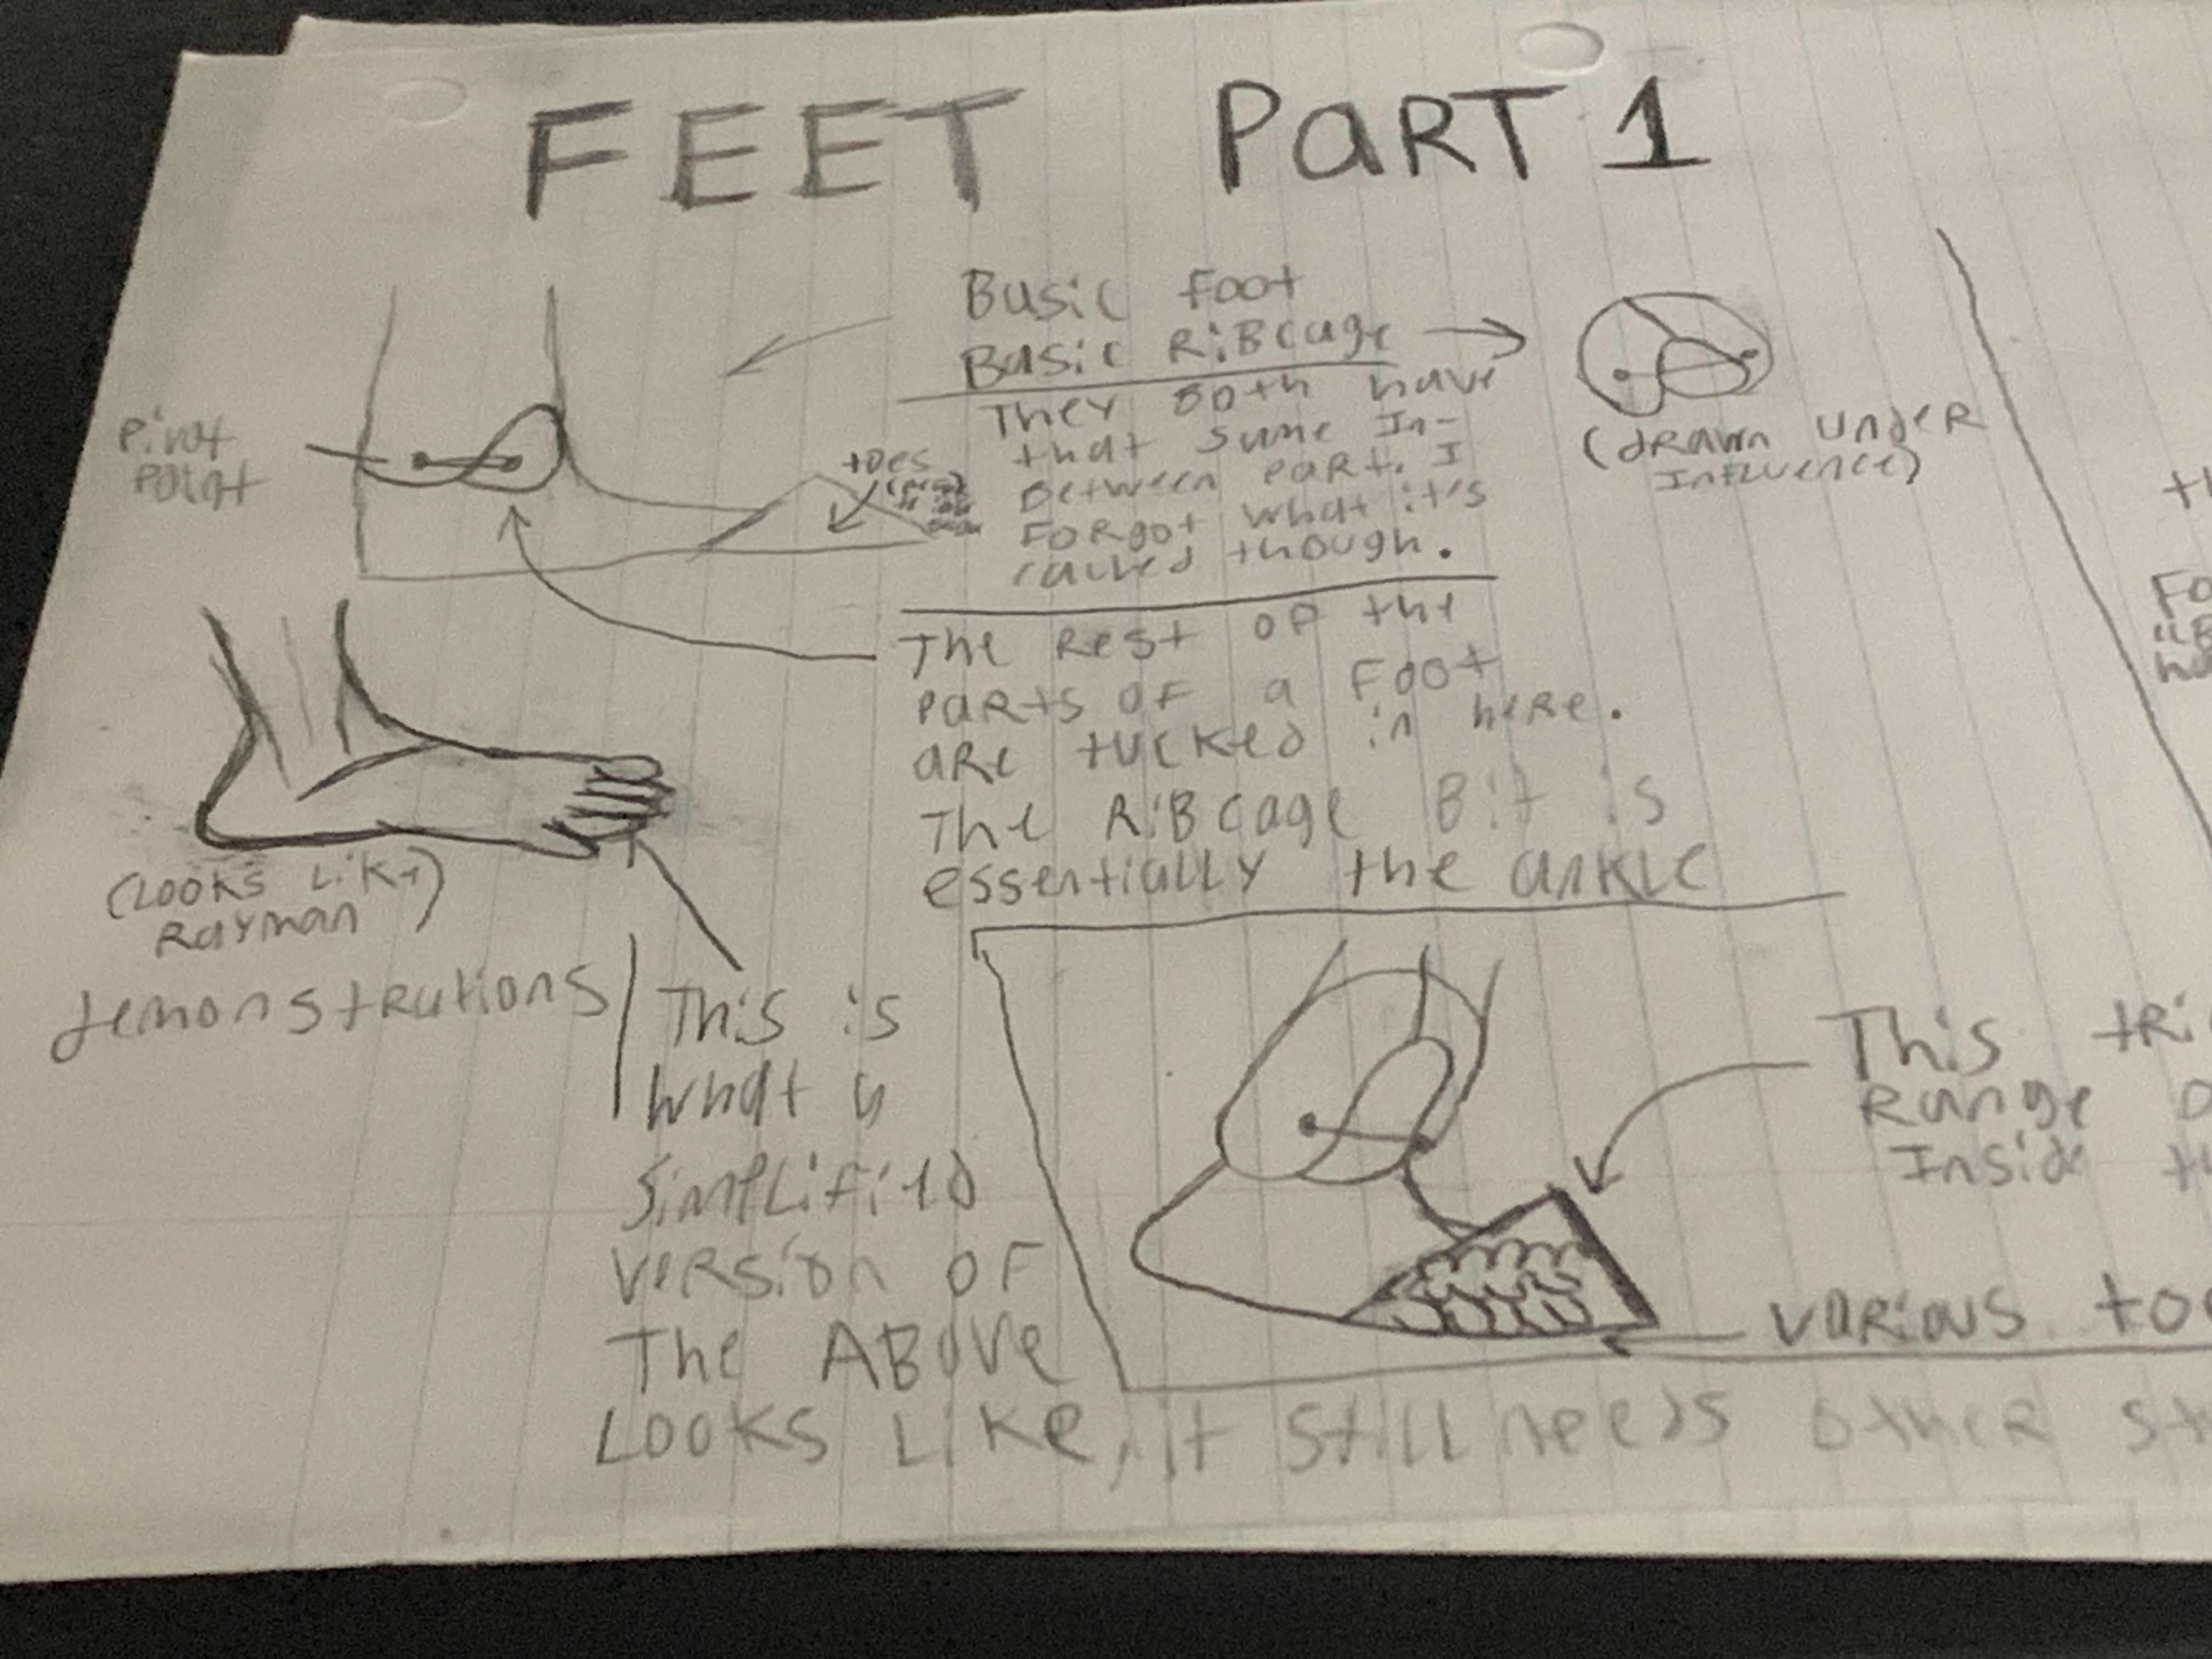 FEET PaRT 1
Basic foot
Basic RiBcage
They Both have
that same In-
Between part. I
Forgot what it's
called though.
(drawn under
Influence)
Pivot
Point
toes
The Rest of the
parts of a Foot
are tucked in here.
The RiBcage Bit is
essentially the ankle
(Looks Like
Rayman)
demonstrations
This is
what a
simplified
version of
The Above
Looks Like, it still needs other
This
Range
Inside
various